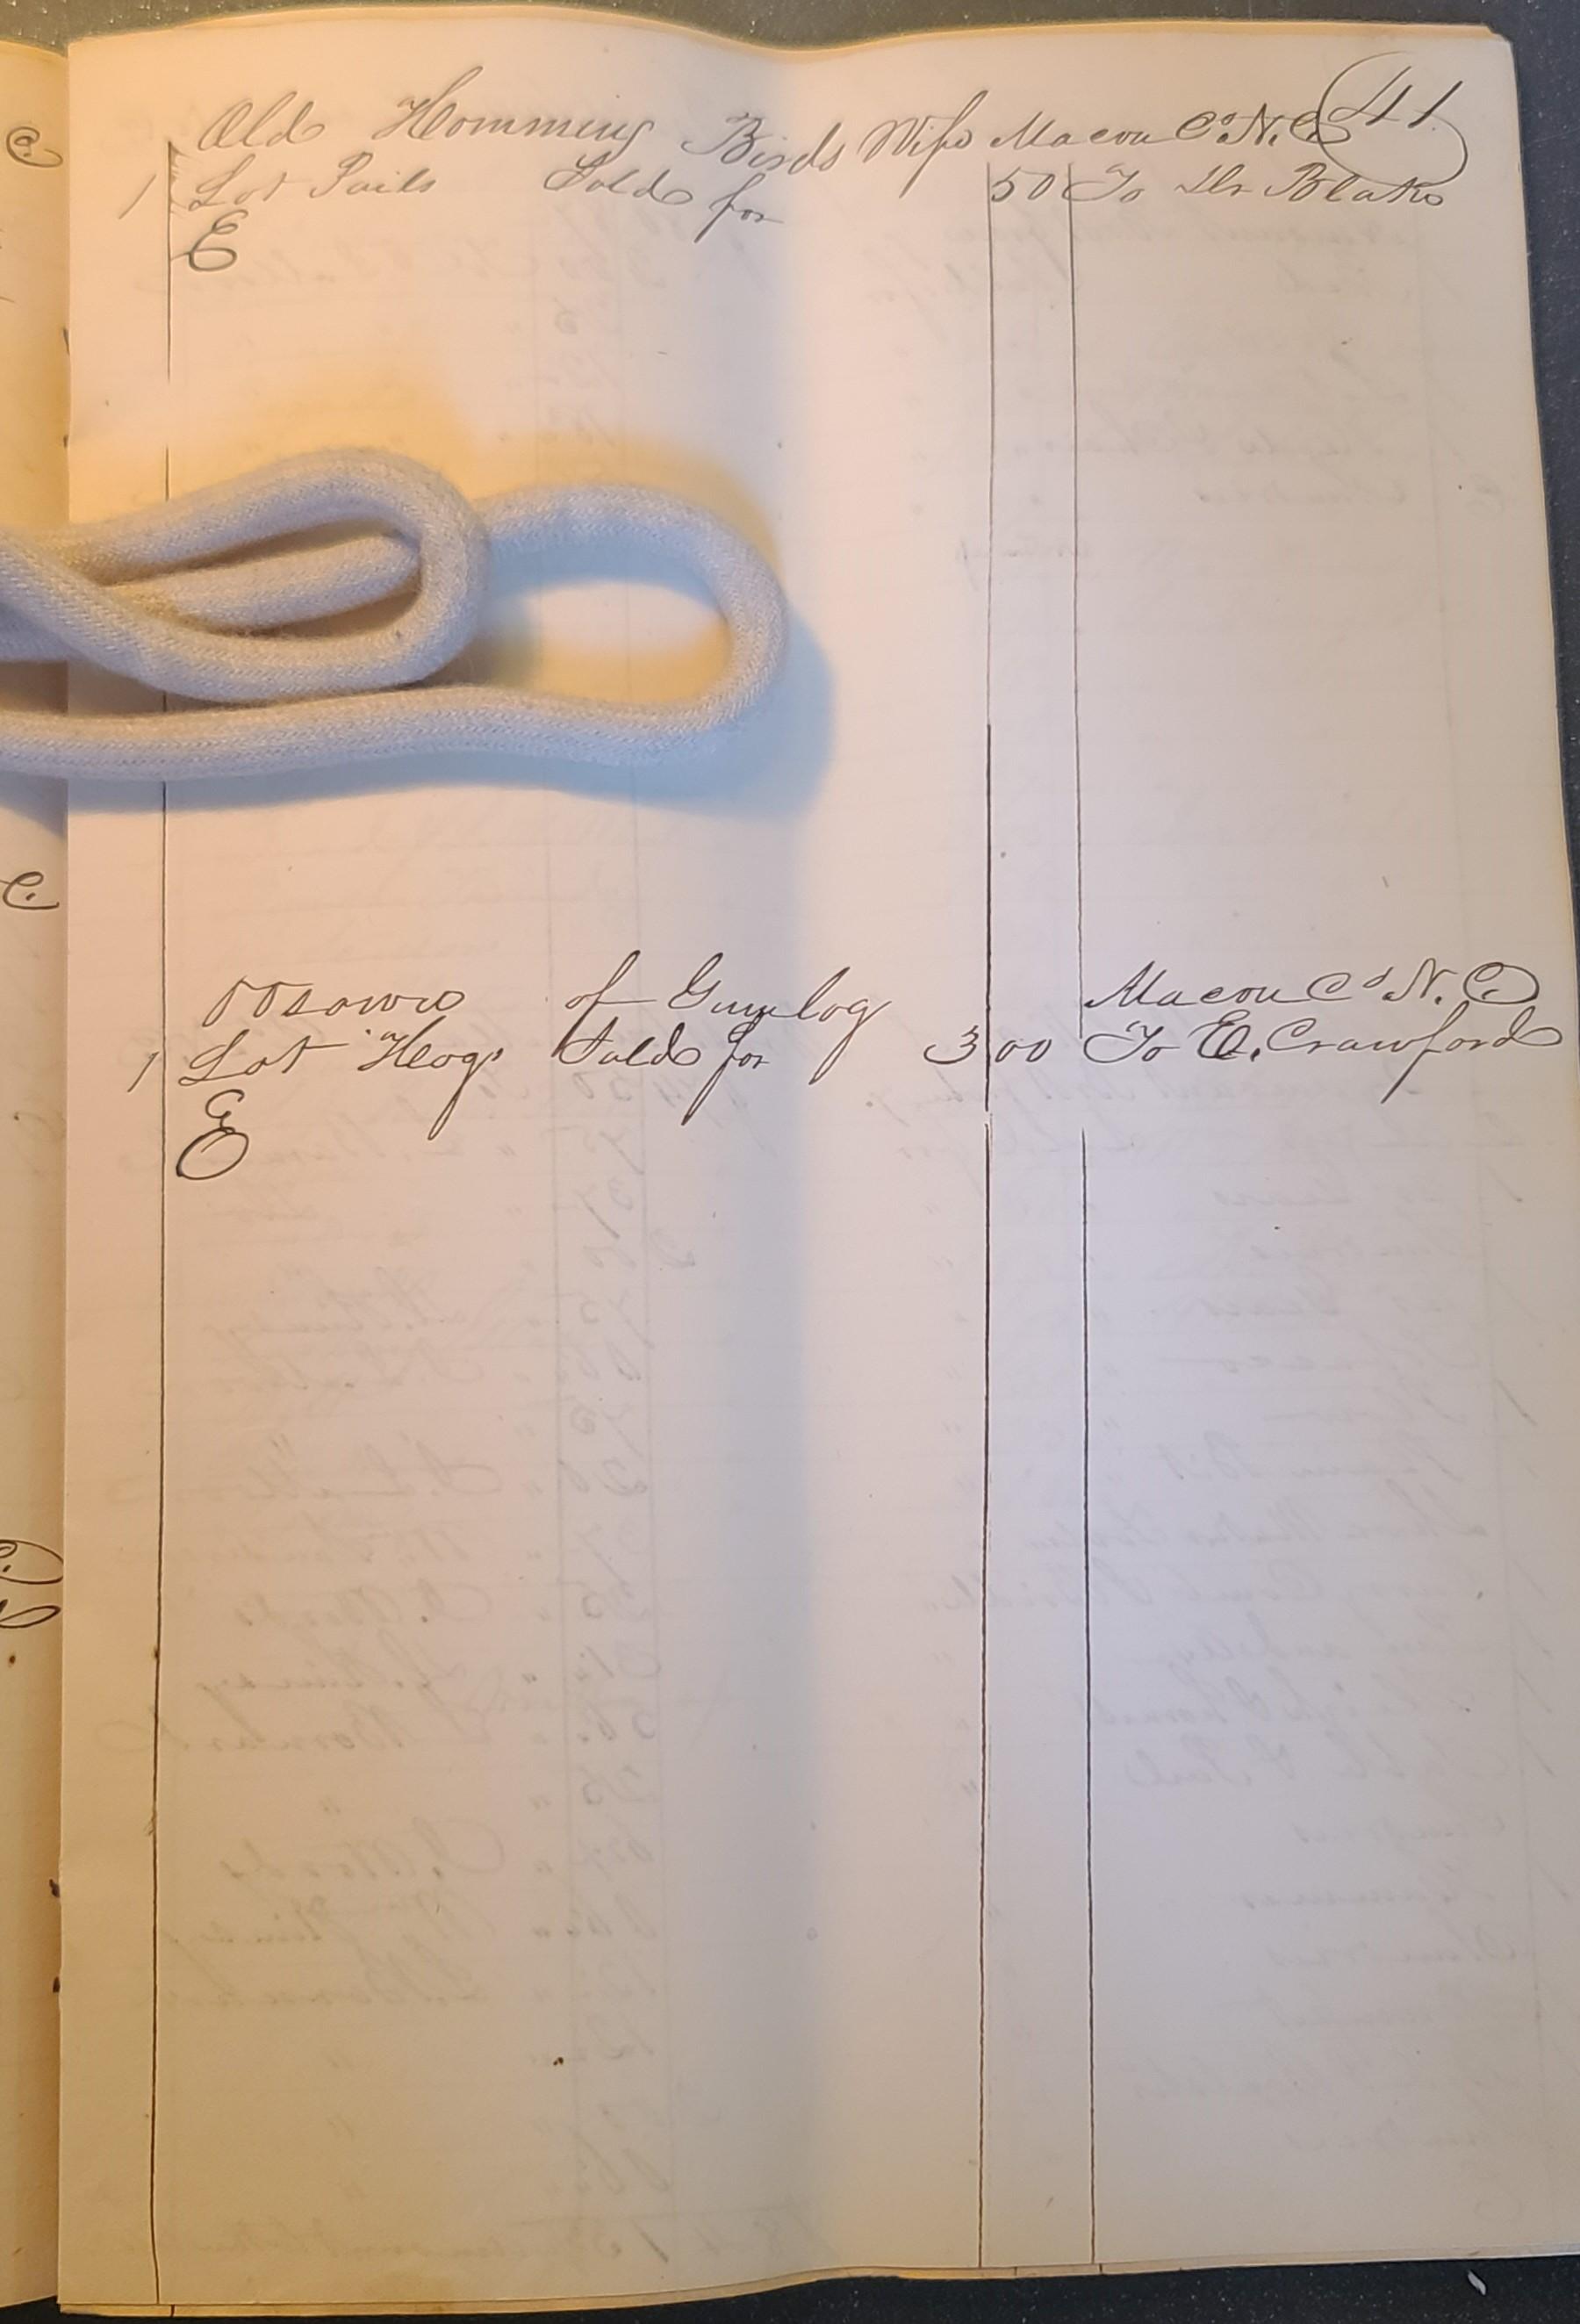 41
Old Homming Birds Wife Macon Co N.C.
1 Lot Pails Sold for 50 To Dr Blake
E
of Gumlog Macon Co N.C.
1 Lot Hogs Sold for 3 00 To E. Crawford
E